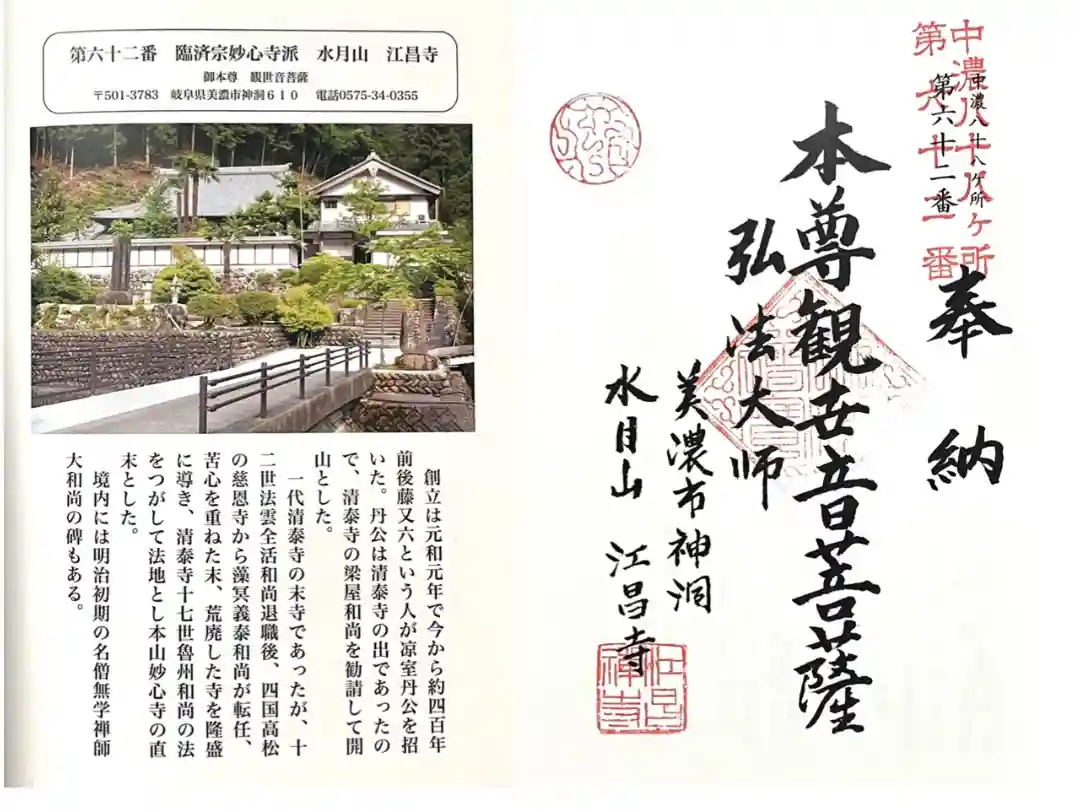 第六十二番　臨済宗妙心寺派　水月山　江昌寺
御本尊　観世音菩薩
〒501-3783　岐阜県美濃市神洞６１０　電話0575-34-0355
創立は元和元年で今から約四百年
前後藤又六という人が凉室丹公を招
いた。丹公は清泰寺の出であったの
で、清泰寺の梁屋和尚を勧請して開
山とした。
一代清泰寺の末寺であったが、十
二世法雲全活和尚退職後、四国高松
の慈恩寺から藻冥義泰和尚が転任、
苦心を重ねた末、荒廃した寺を隆盛
に導き、清泰寺十七世魯州和尚の法
をつがして法地とし本山妙心寺の直
末とした。
境内には明治初期の名僧無学禅師
大和尚の碑もある。
中濃八十八ヶ所
第六十二番
中濃八十八ヶ所
第六十二番
奉納
本尊観世音菩薩
弘法大師
美濃市神洞
水月山　江昌寺
江昌
禅寺